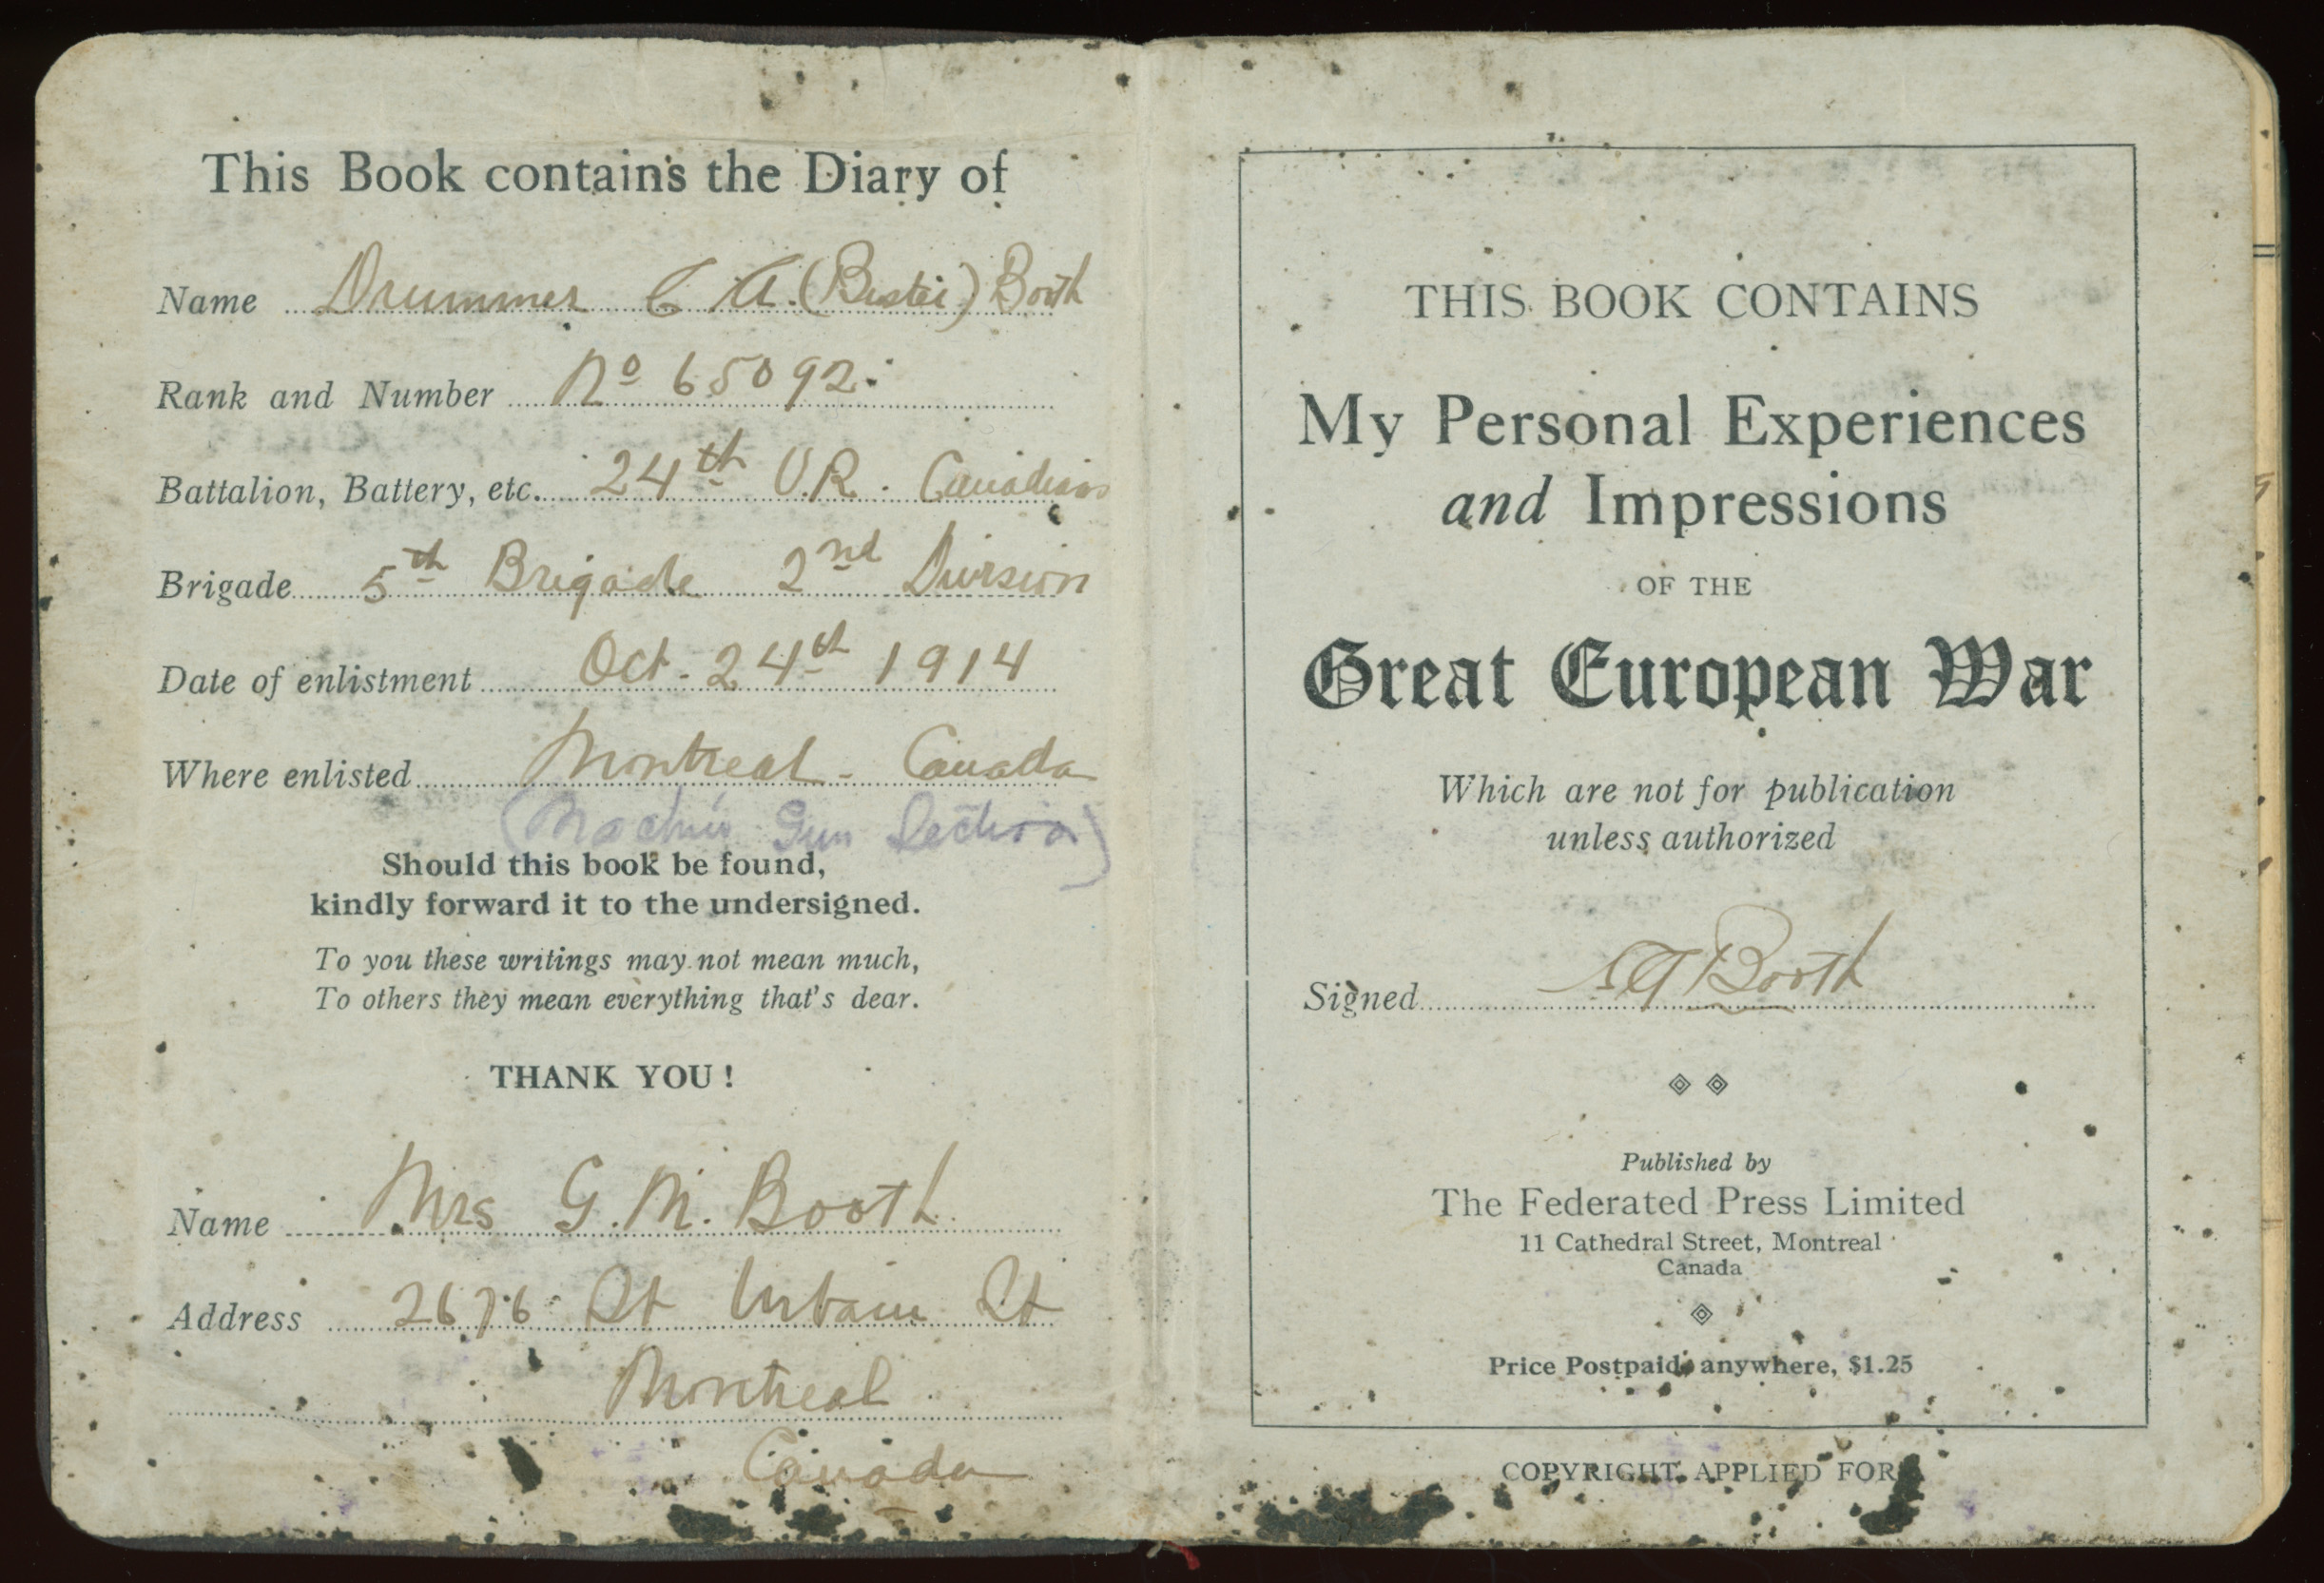 This Book contains the Diary of
Name Drummer C A. (Buster) Booth
Rank and Number No 65092.
Battalion, Battery, etc. 24th V.R. Canadians
Brigade 5th Brigade 2nd Division
Date of enlistment Oct. 24th 1914
Where enlisted Montreal - Canada
(Machine Gun Section)
Should this book be found,
kindly forward it to the undersigned.
To you these writings may not mean much,
To others they mean everything that's dear.
THANK YOU!
Name Mrs G. M. Booth.
Address 2676 St Urbain St
Montreal
Canada
THIS BOOK CONTAINS
My Personal Experiences
and Impressions
OF THE
Great European War
Which are not for publication
unless authorized
Signed Booth
Published by
The Federated Press Limited
11 Cathedral Street, Montreal
Canada
Price Postpaid, anywhere, $1.25
COPYRIGHT APPLIED FOR